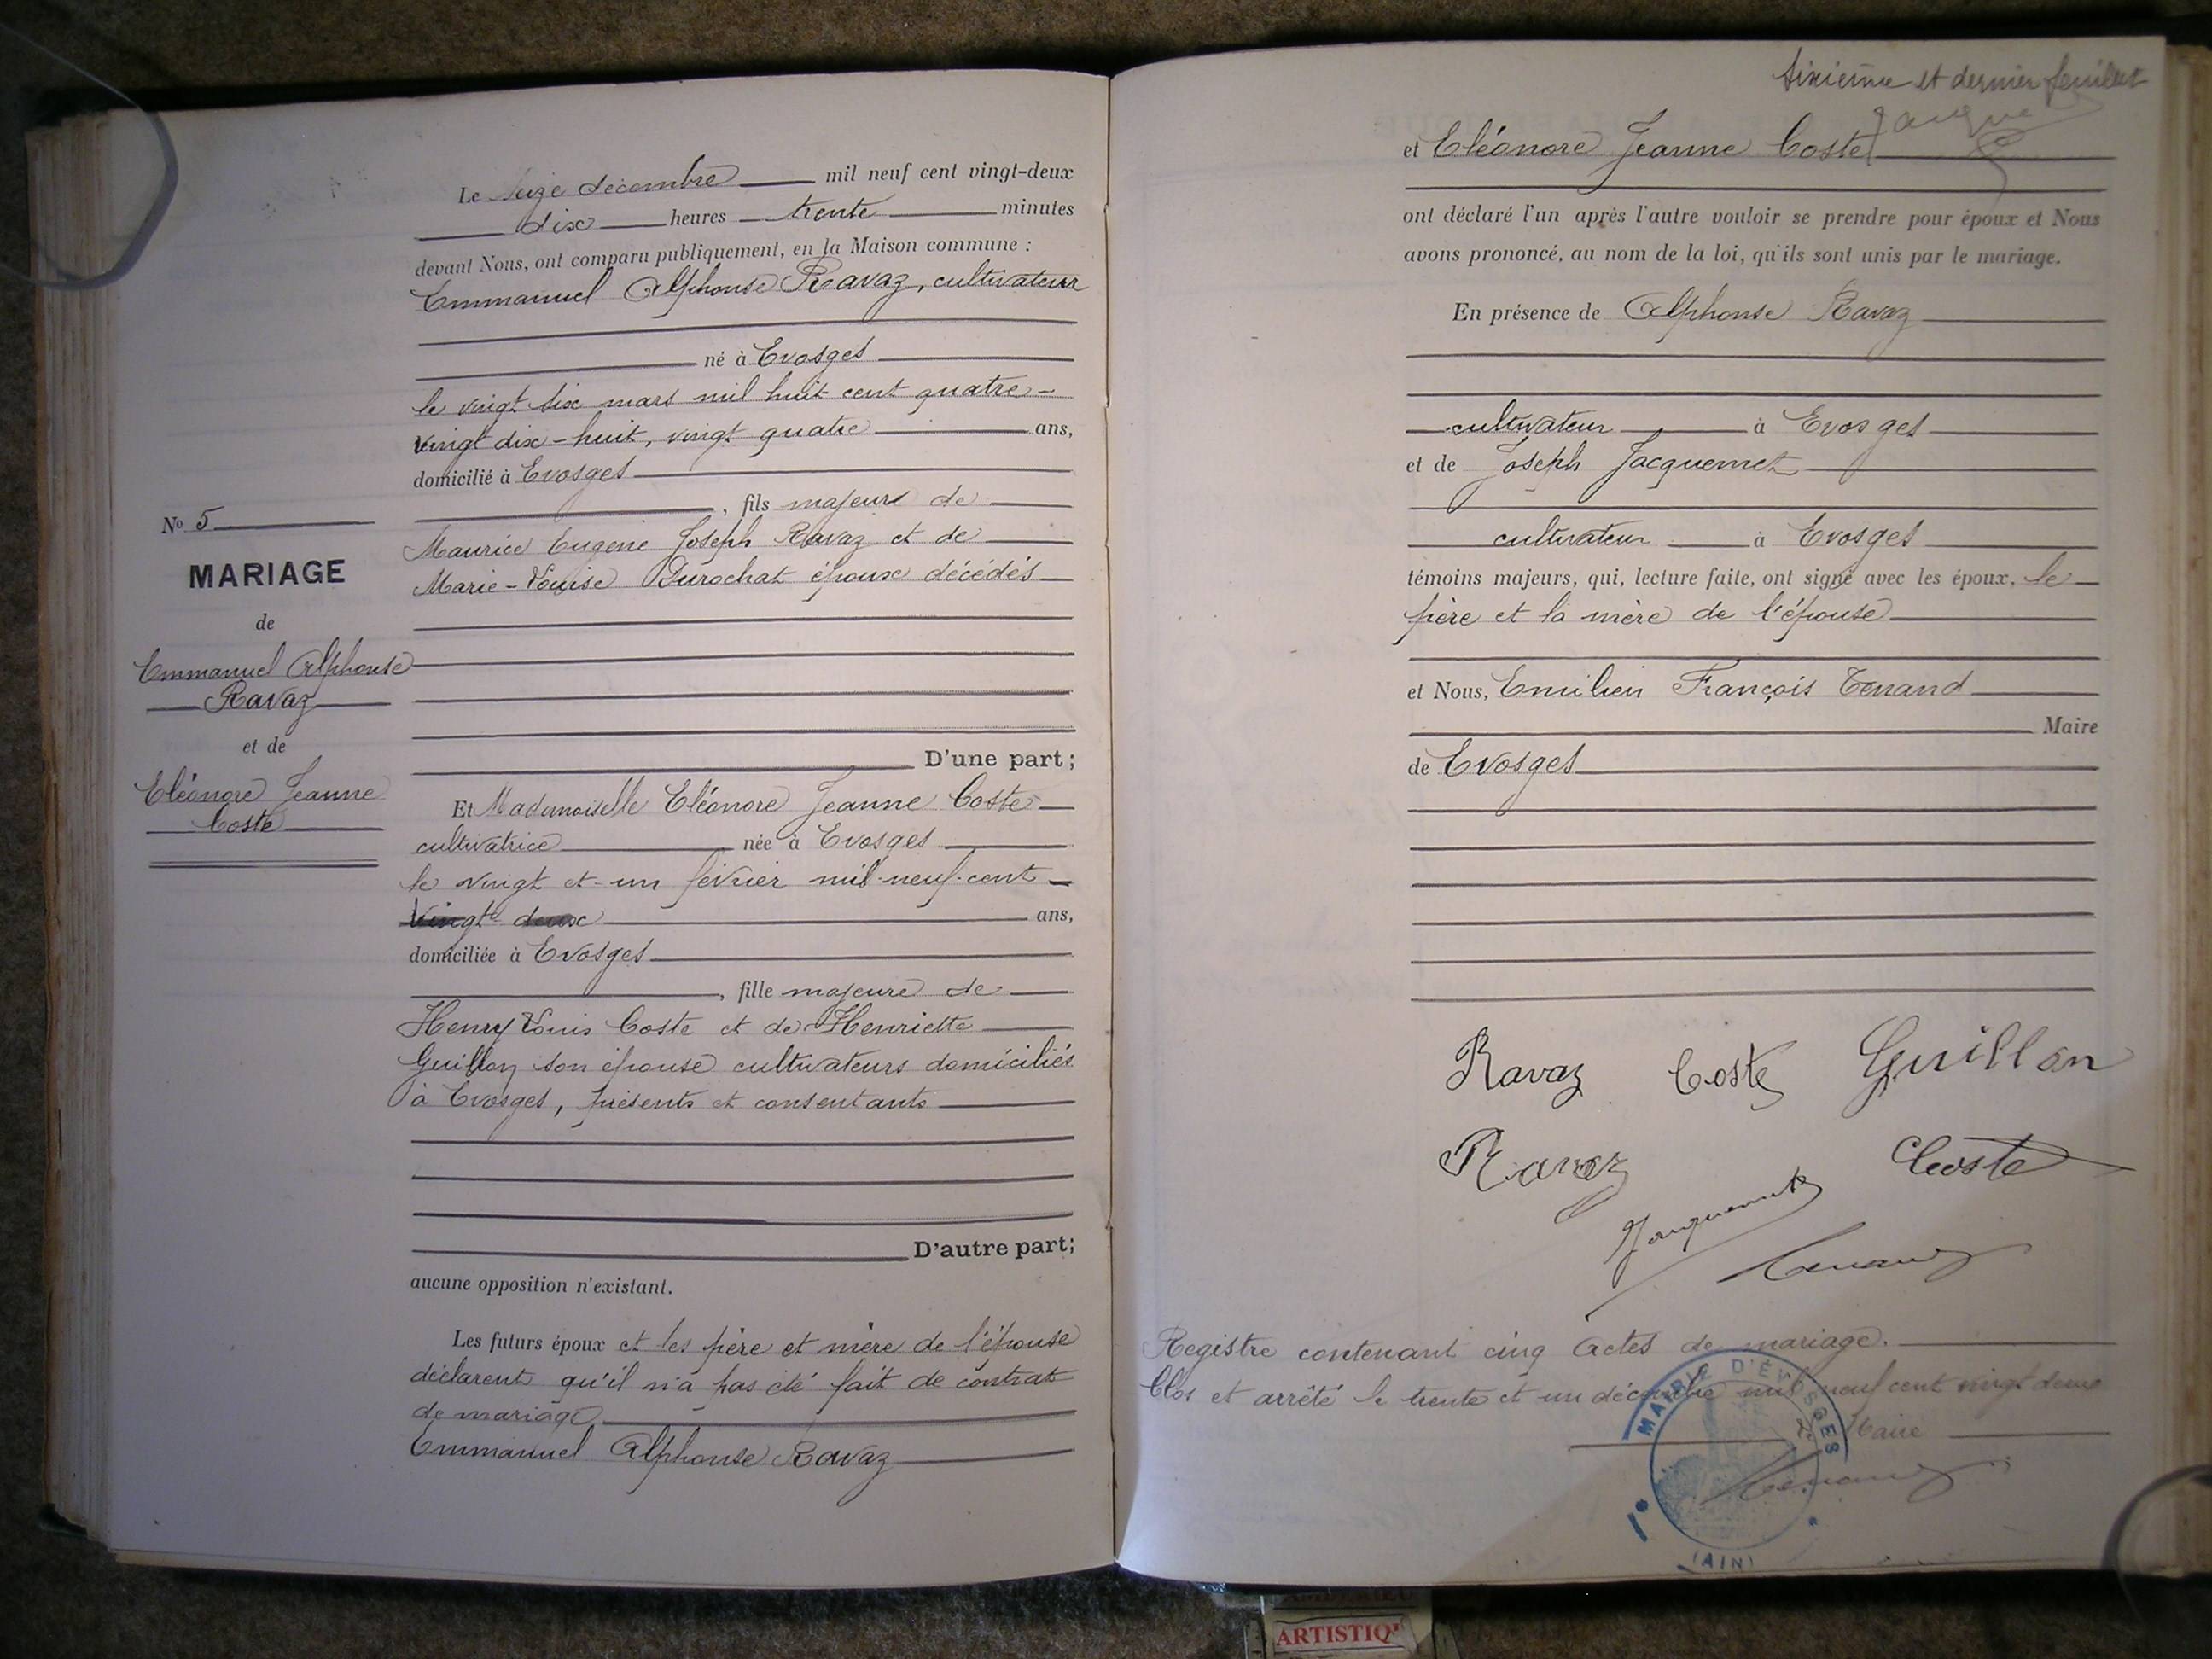 Le seize décembre mil neuf cent vingt-deux
dix heures trente minutes
devant Nous, ont comparu publiquement, en la Maison commune :
Emmanuel Alphonse Ravaz, cultivateur
né à Evosges
le vingt six mars mil huit cent quatre-
vingt dix-huit, vingt quatre ans,
domicilié à Evosges
, fils majeur de
Maurice Eugène Joseph Ravaz et de
Marie-Louise Durochat époux décédés
D'une part ;
Et Mademoiselle Eléonore Jeanne Coste
cultivatrice née à Evosges
le vingt et un février mil neuf cent
vingt deux ans,
domiciliée à Evosges
, fille majeure de
Henry Louis Coste et de Henriette
Guillon son épouse cultivateurs domiciliés
à Evosges, présents et consentants
D'autre part ;
aucune opposition n'existant.
Les futurs époux et les père et mère de l'épouse
déclarent qu'il n'a pas été fait de contrat
de mariage
Emmanuel Alphonse Ravaz
No 5
MARIAGE
de
Emmanuel Alphonse
Ravaz
et de
Eléonore Jeanne
Coste
Sixième et dernier feuillet
et Eléonore Jeanne Coste
ont déclaré l'un après l'autre vouloir se prendre pour époux et Nous
avons prononcé, au nom de la loi, qu'ils sont unis par le mariage.
En présence de Alphonse Ravaz
cultivateur à Evosges
et de Joseph Jacquemet
cultivateur à Evosges
témoins majeurs, qui, lecture faite, ont signé avec les époux, le
père et la mère de l'épouse
et Nous, Emilien François Tenand
Maire
de Evosges
Ravaz Coste Guillon
Ravaz Coste
Jacquemet
Tenand
Registre contenant cinq actes de mariage.
Clos et arrêté le trente et un décembre mil neuf cent vingt deux
Le Maire
Tenand
MAIRIE D'ÉVOSGES
(AIN)
ARTISTIQ